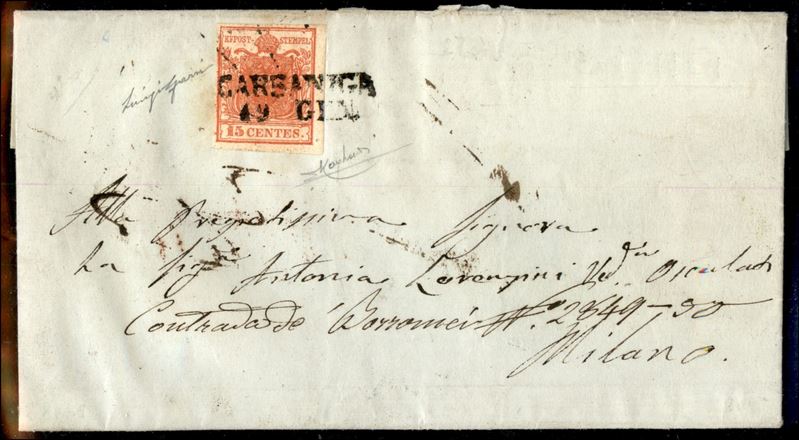 KK POST-STEMPEL
GARSANIGA
19 GEN.
15 CENTES.
Alla Pregiatissima Signora
La Sig.ra Antonia Lorenzini Ved.va Osculati
Contrada de' Borromei N.° 2849-50
Milano.